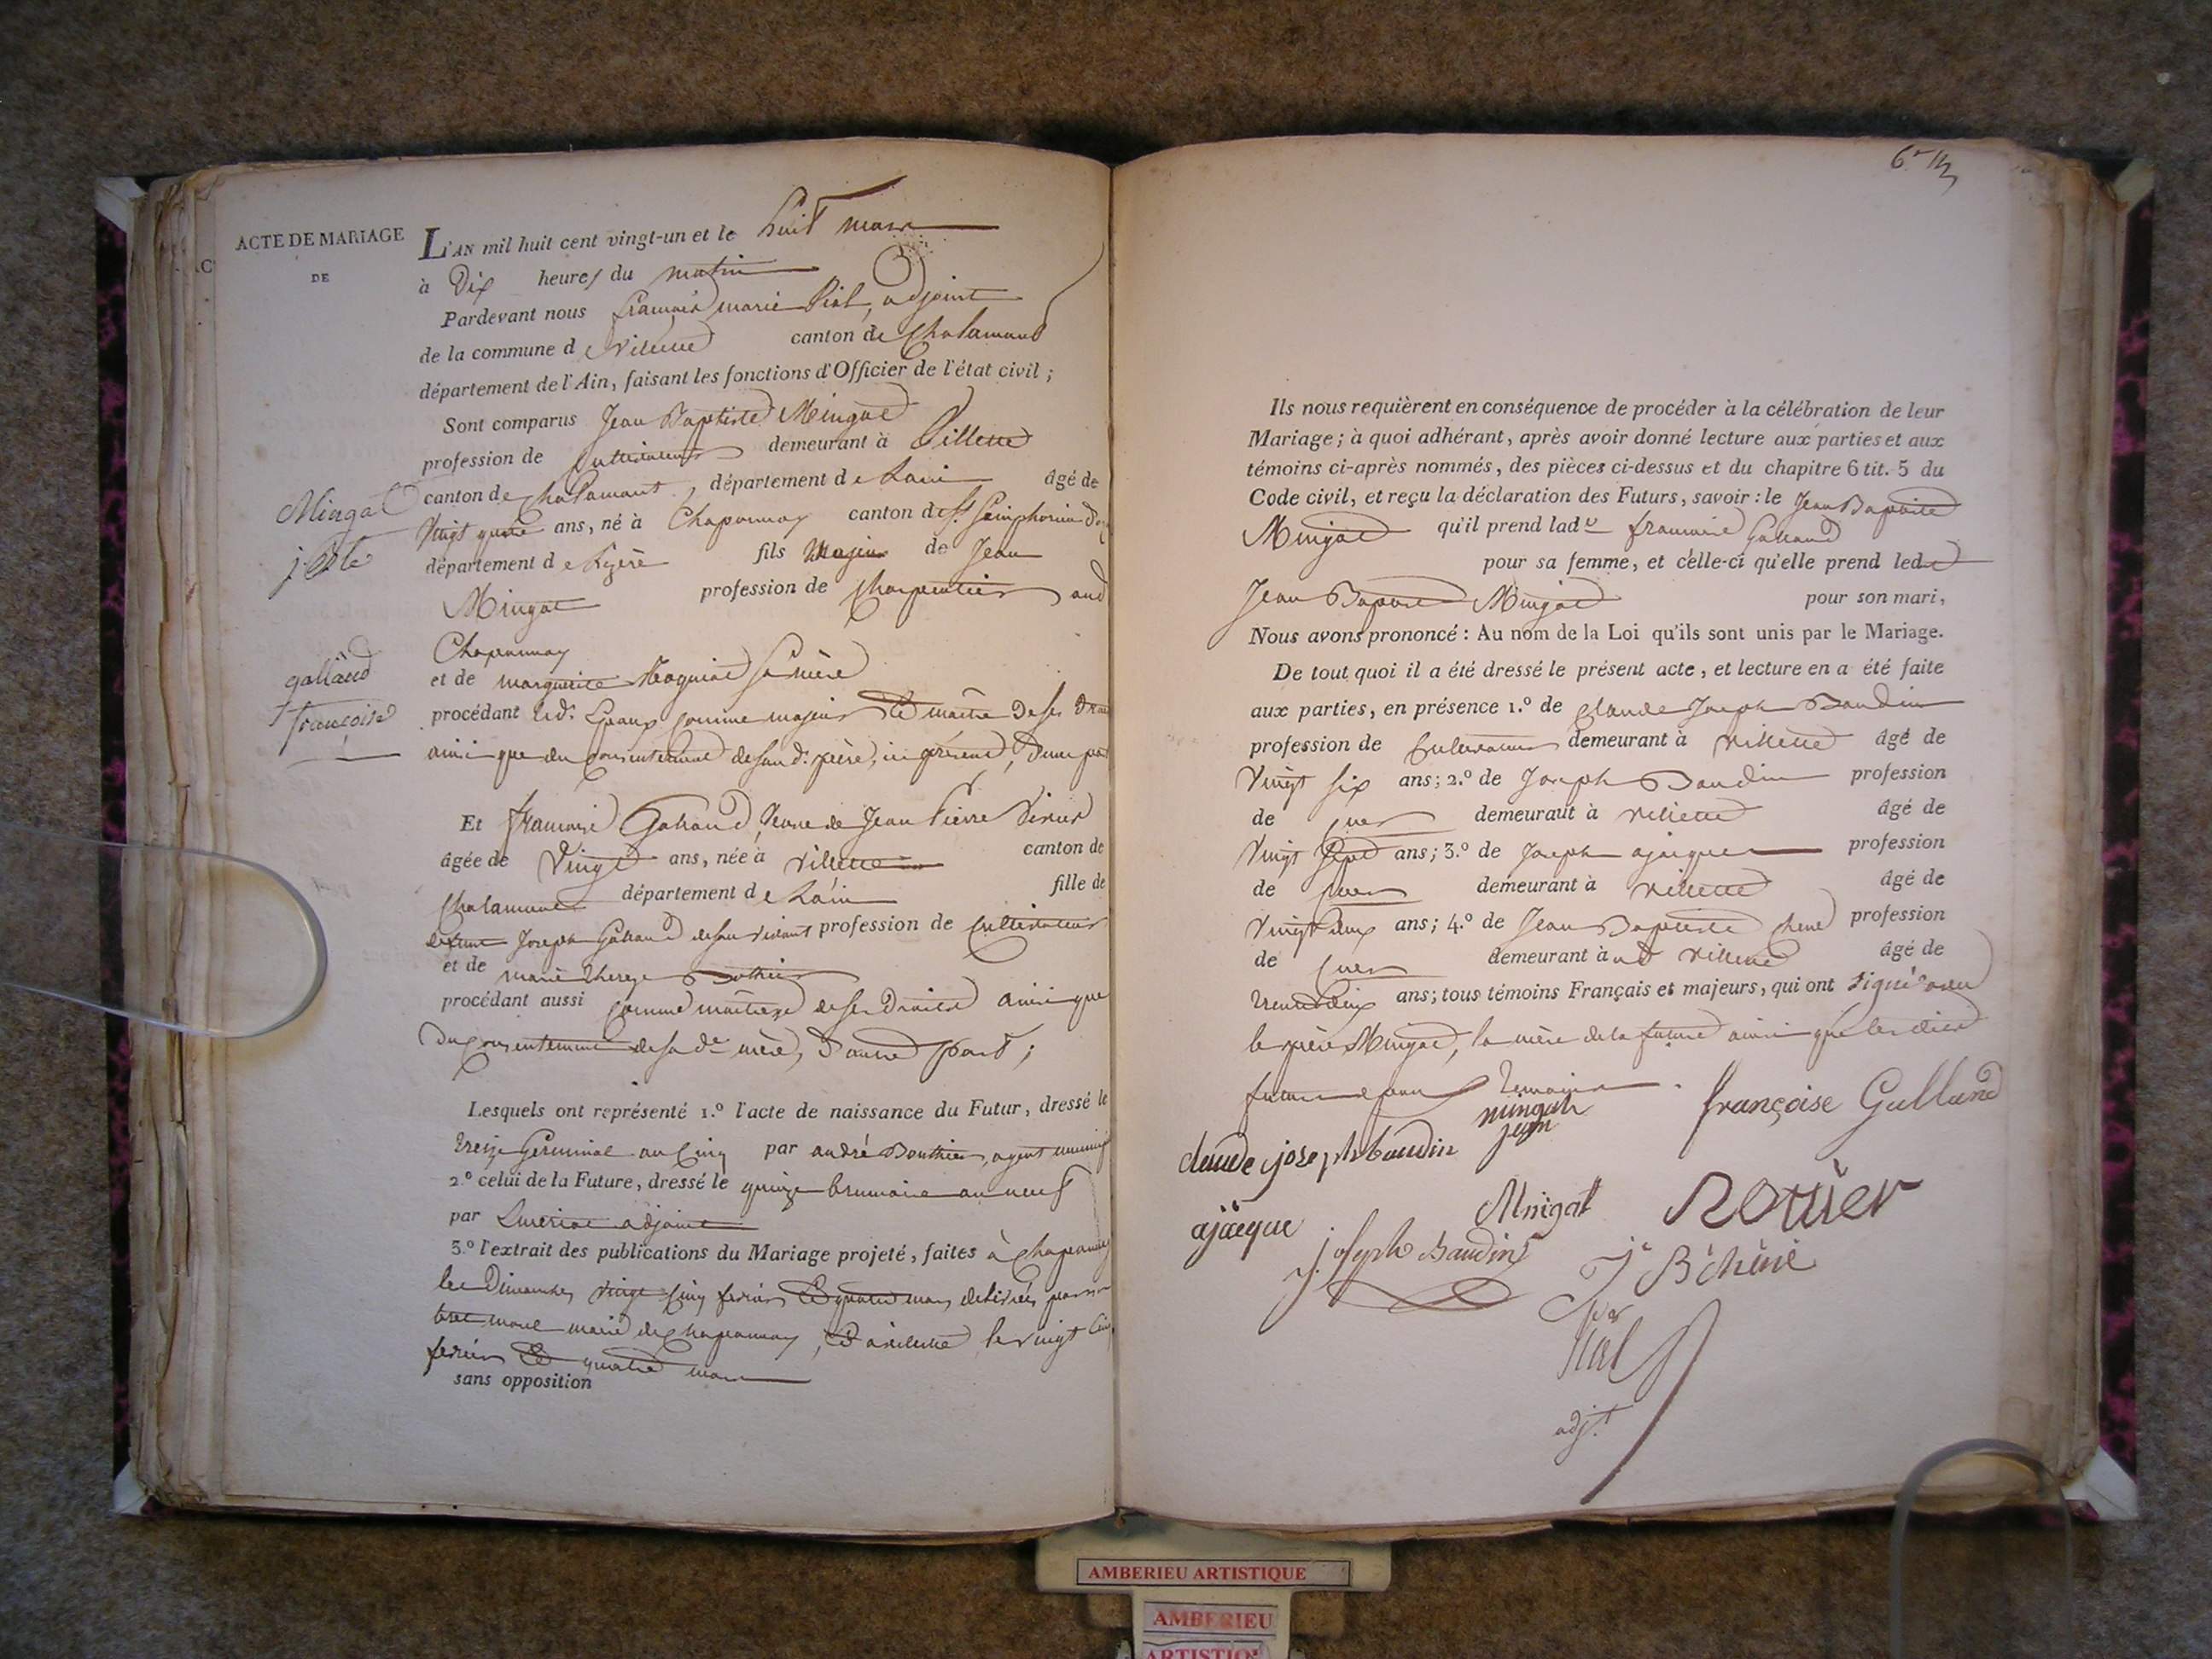 6e M
ACTE DE MARIAGE
DE
L'AN mil huit cent vingt-un et le huit mars
à Dix heures du matin
Pardevant nous françois marie Piat, adjoint
de la commune de villette canton de Chalamont
département de l'Ain, faisant les fonctions d'Officier de l'état civil ;
Sont comparus Jean Baptiste Mingat
profession de Cultivateur demeurant à Villette
canton de Chalamont, département de Lain âgé de
Vingt quatre ans, né à Chaponnay canton de St Simphorien d'
département de Lizère fils Majeur de Jean
Mingat profession de Charpentier aud
Chaponnay
et de marguerite sa mère
procédant led. Epoux comme majeur et maître de ses droits
ainsi que du consentement de son d. père, ici présent, d'une part
Mingat
j. Bte
galland
françoise
Et françoise Galland, veuve de Jean Pierre
âgée de Vingt ans, née à villette canton de
Chalamont département de Lain fille de
defunt Joseph Galland de son vivant profession de Cultivateur
et de marie therese
procédant aussi comme maîtresse de ses Droits ainsi que
du consentement de sa de mère, d'autre part ;
Lesquels ont représenté 1.º l'acte de naissance du Futur, dressé le
treize Germinal an Cinq par andré Bouthier, agent municip
2.º celui de la Future, dressé le quinze brumaire an neuf
par adjoint
3.º l'extrait des publications du Mariage projeté, faites à Chaponnay
les Dimanches vingt Cinq fevrier et quatre mars délivrées par
maire de Chaponnay, et à villette le vingt Cinq
fevrier et quatre mars
sans opposition
Ils nous requièrent en conséquence de procéder à la célébration de leur
Mariage ; à quoi adhérant, après avoir donné lecture aux parties et aux
témoins ci-après nommés, des pièces ci-dessus et du chapitre 6 tit. 5 du
Code civil, et reçu la déclaration des Futurs, savoir : le Jean Baptiste
Mingat qu'il prend lade françoise Galland
pour sa femme, et celle-ci qu'elle prend led
Jean Baptiste Mingat pour son mari,
Nous avons prononcé : Au nom de la Loi qu'ils sont unis par le Mariage.
De tout quoi il a été dressé le présent acte, et lecture en a été faite
aux parties, en présence 1.º de Claude Joseph Baudin
profession de Cultivateur demeurant à villette âgé de
Vingt six ans ; 2.º de Joseph Baudin profession
de demeurant à villette âgé de
Vingt Sept ans ; 3.º de Joseph ajacques profession
de demeurant à villette âgé de
Vingt deux ans ; 4.º de Jean Baptiste chene profession
de demeurant à ud villette âgé de
trente deux ans ; tous témoins Français et majeurs, qui ont signé avec
le père Mingat, la mère de la future ainsi que les dits
futurs epoux
mingat
jean
françoise Galland
claude joseph baudin
Mingat
Rotuer
ajacque
joseph Baudin
J Bte chêne
Piat
adj.t
AMBERIEU ARTISTIQUE
AMBERIEU
ARTISTIQ